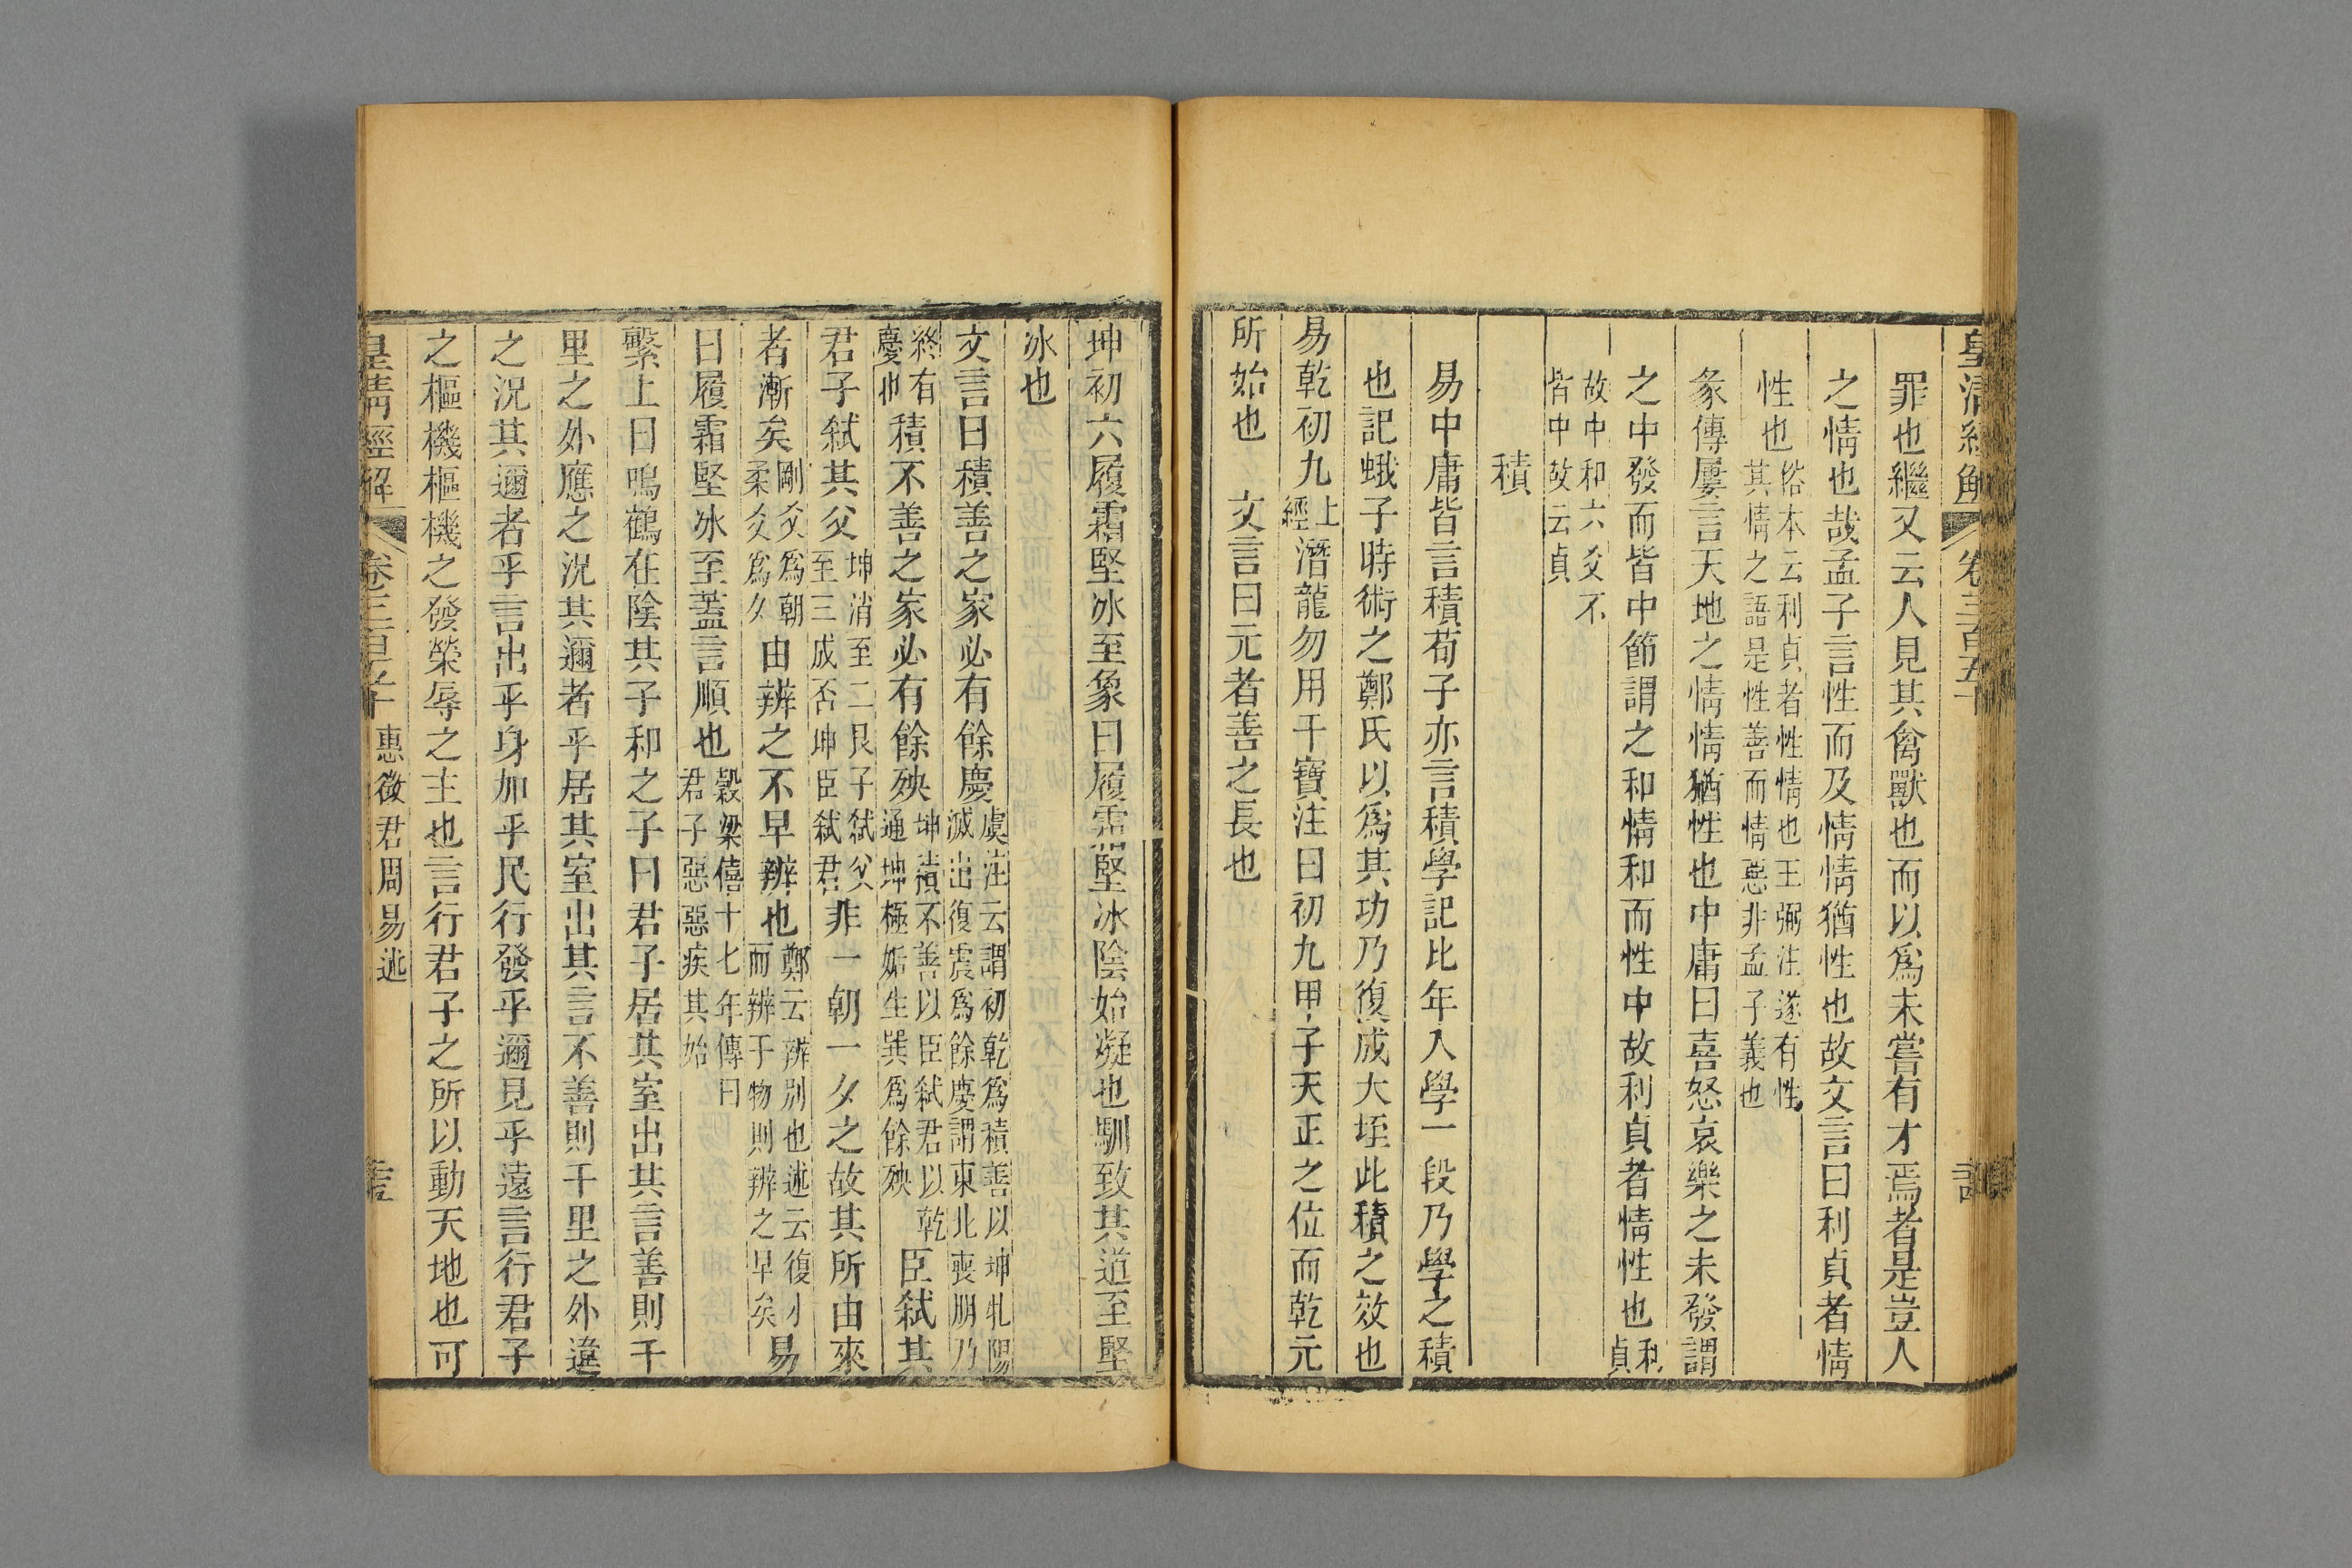 皇清經解 卷三百五十
罪也繼又云人見其禽獸也而以爲未嘗有才焉者是豈人
之情也哉孟子言性而及情情猶性也故文言曰利貞者情
性也俗本云利貞者性情也王弼注遂有性其情之語是性善而情惡非孟子義也
彖傳屢言天地之情情猶性也中庸曰喜怒哀樂之未發謂
之中發而皆中節謂之和情和而性中故利貞者情性也利貞
故中和六爻不皆中故云貞
積
易中庸皆言積荀子亦言積學記比年入學一段乃學之積
也記蛾子時術之鄭氏以爲其功乃復成大垤此積之效也
易乾初九上經潛龍勿用干寶注曰初九甲子天正之位而乾元
所始也 文言曰元者善之長也
坤初六履霜堅冰至象曰履霜堅冰陰始凝也馴致其道至堅
冰也
文言曰積善之家必有餘慶虞注云謂初乾爲積善以坤牝陽滅出復震爲餘慶謂東北喪朋乃
終有慶也積不善之家必有餘殃坤積不善以臣弒君以乾通坤極姤生巽爲餘殃臣弒其
君子弒其父坤消至二艮子弒父至三成否坤臣弒君非一朝一夕之故其所由來
者漸矣剛爻爲朝柔爻爲夕由辨之不早辨也鄭云辨別也述云復小而辨于物則辨之早矣易
曰履霜堅冰至蓋言順也穀梁僖十七年傳曰君子惡惡疾其始
繫上曰鳴鶴在陰其子和之子曰君子居其室出其言善則千
里之外應之況其邇者乎居其室出其言不善則千里之外違
之況其邇者乎言出乎身加乎民行發乎邇見乎遠言行君子
之樞機樞機之發榮辱之主也言行君子之所以動天地也可
皇清經解 卷三百五十 惠徵君周易述